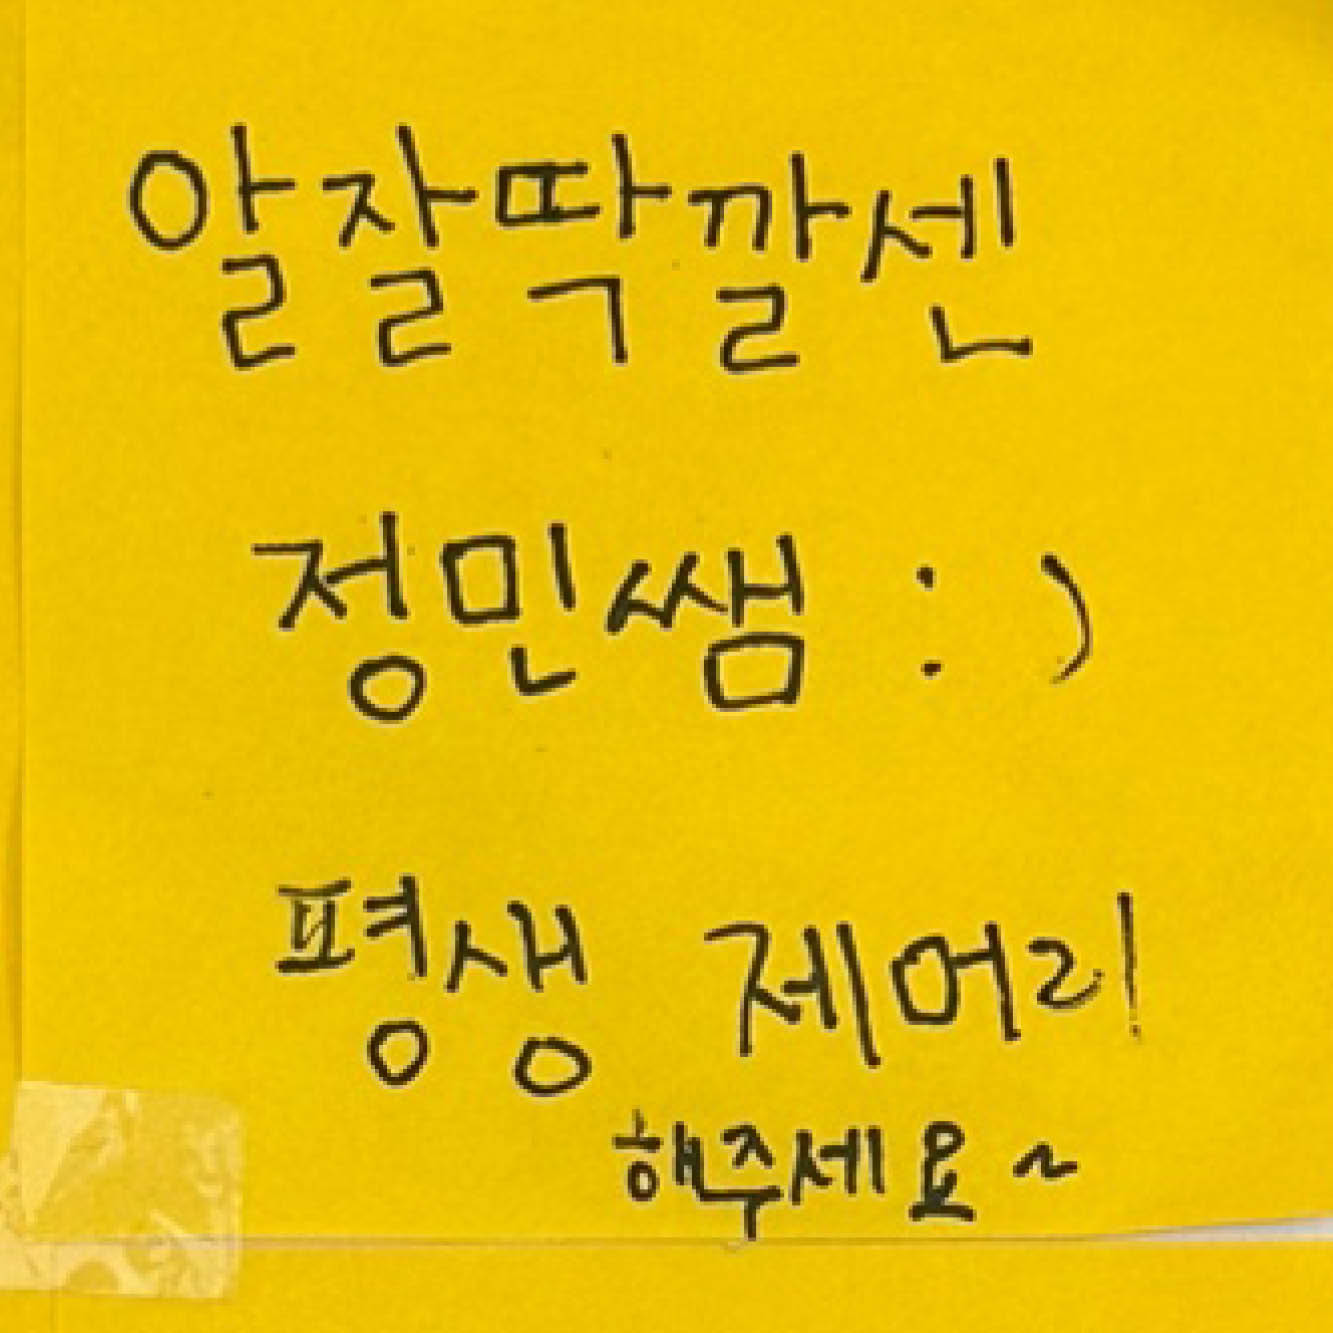 알잘딱깔센
정민쌤 :)
평생 제머리
해주세요~